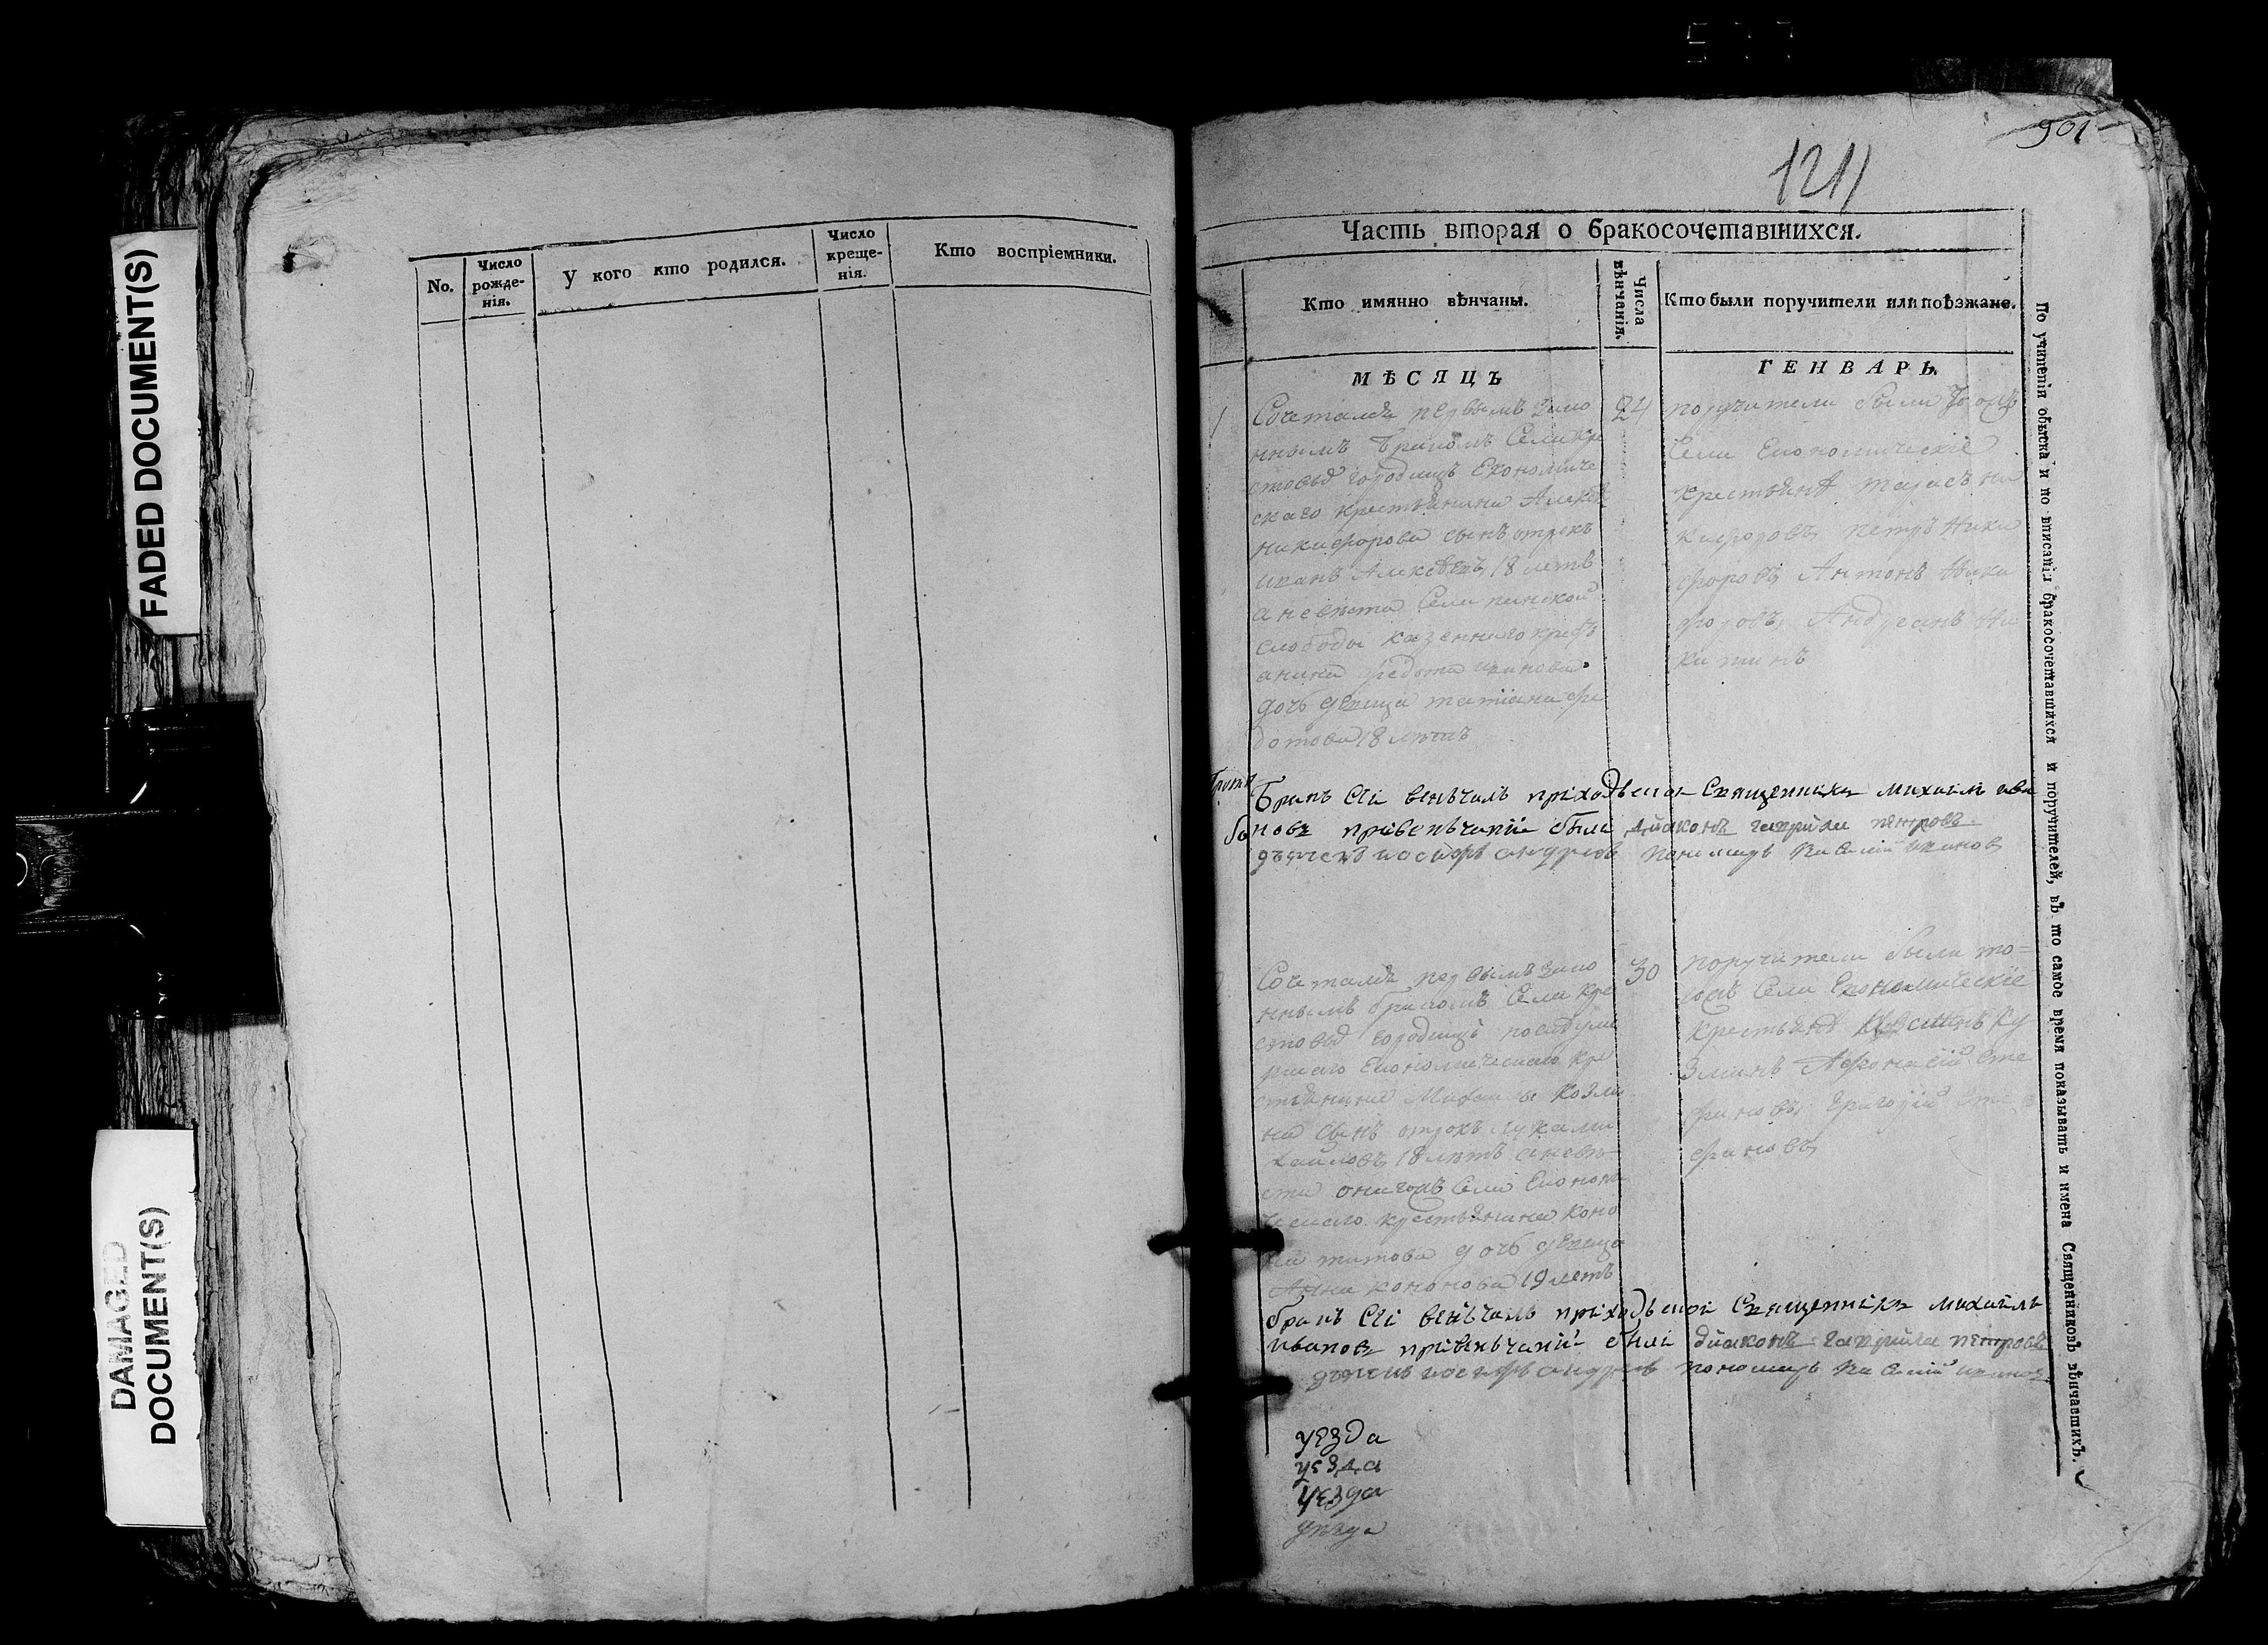 FADED DOCUMENT(S)
DAMAGED
DOCUMENT(S)
No.
Число
рожде-
нія.
У кого кто родился.
Число
креще-
нія.
Кто воспріемники.
901
1211
Часть вторая о бракосочетавшихся.
Кто имянно вѣнчаны.
Числа
вѣнчанія.
Кто были поручители или поѣзжане.
МѢСЯЦЪ
ГЕНВАРЬ
1
Сочетался первымъ зако
ннымъ бракомъ Села Кре
стовыхъ городищъ Економиче
скаго крестьянина Алексѣя
никифорова сынъ отрокъ
иванъ Алексѣевъ 18 летъ
а невѣста Села
слободы казеннаго крестъ
янина федота иванова
дочь девица татиана фе
дотова 18 летъ
24
поручители были
Села Економическіе
крестьянѣ тарасъ ни
кифоровъ петръ Ники
форовъ Антонъ Ники
форовъ Андреанъ Ни
китинъ
Бракъ Сеі венчалъ приходьской Священникъ михаилъ ива
новъ привенчаніи были диаконъ гаврила петровъ
дьячекъ иосифъ андреевъ пономарь василий иванов
Сочетался первымъ зако
ннымъ бракомъ Села Кре
стовыхъ городищъ
Економическаго кре
стьянина Козми
на сынъ отрокъ лука ми
хайловъ 18 летъ а невѣ
ста Села Економи
ческаго крестьянина Коно
на титова дочь девица
Анна кононова 19 летъ
30
поручители были то=
Села Економическіе
крестьянѣ Ку
зминъ Афонасей Сте
фановъ Григорій Сте
фановъ
бракъ Сеі венчалъ приходьской Священникъ михаилъ
Ивановъ привенчаніи были диаконъ гаврила петровъ
дьячекъ иосифъ андреевъ пономарь василий иванов
уезда
уезда
уезда
По учиненіи обыска и по вписаніи бракосочетавшихся и поручителей, въ то самое время показывать и имена Священниковъ вѣнчавшихъ.